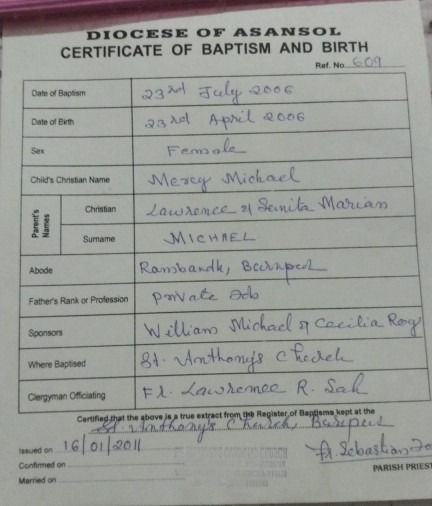 DIOCESE OF ASANSOL
CERTIFICATE OF BAPTISM AND BIRTH
Ref. No. 609
Date of Baptism 23rd July 2006
Date of Birth 23rd April 2006
Sex Female
Child's Christian Name Mercy Michael
Parent's Names
Christian Lawrence & Sunita Mariam
Surname MICHAEL
Abode Rambandh, Burnpur
Father's Rank or Profession Private Job
Sponsors William Michael & Cecilia Roy
Where Baptised St. Anthony's Church
Clergyman Officiating Fr. Lawrence R. Sah
Certified that the above is a true extract from the Register of Baptisms kept at the
St Anthony's Church, Burnpur
Issued on 16/01/2011
Fr. Sebastian
Confirmed on
PARISH PRIEST
Married on